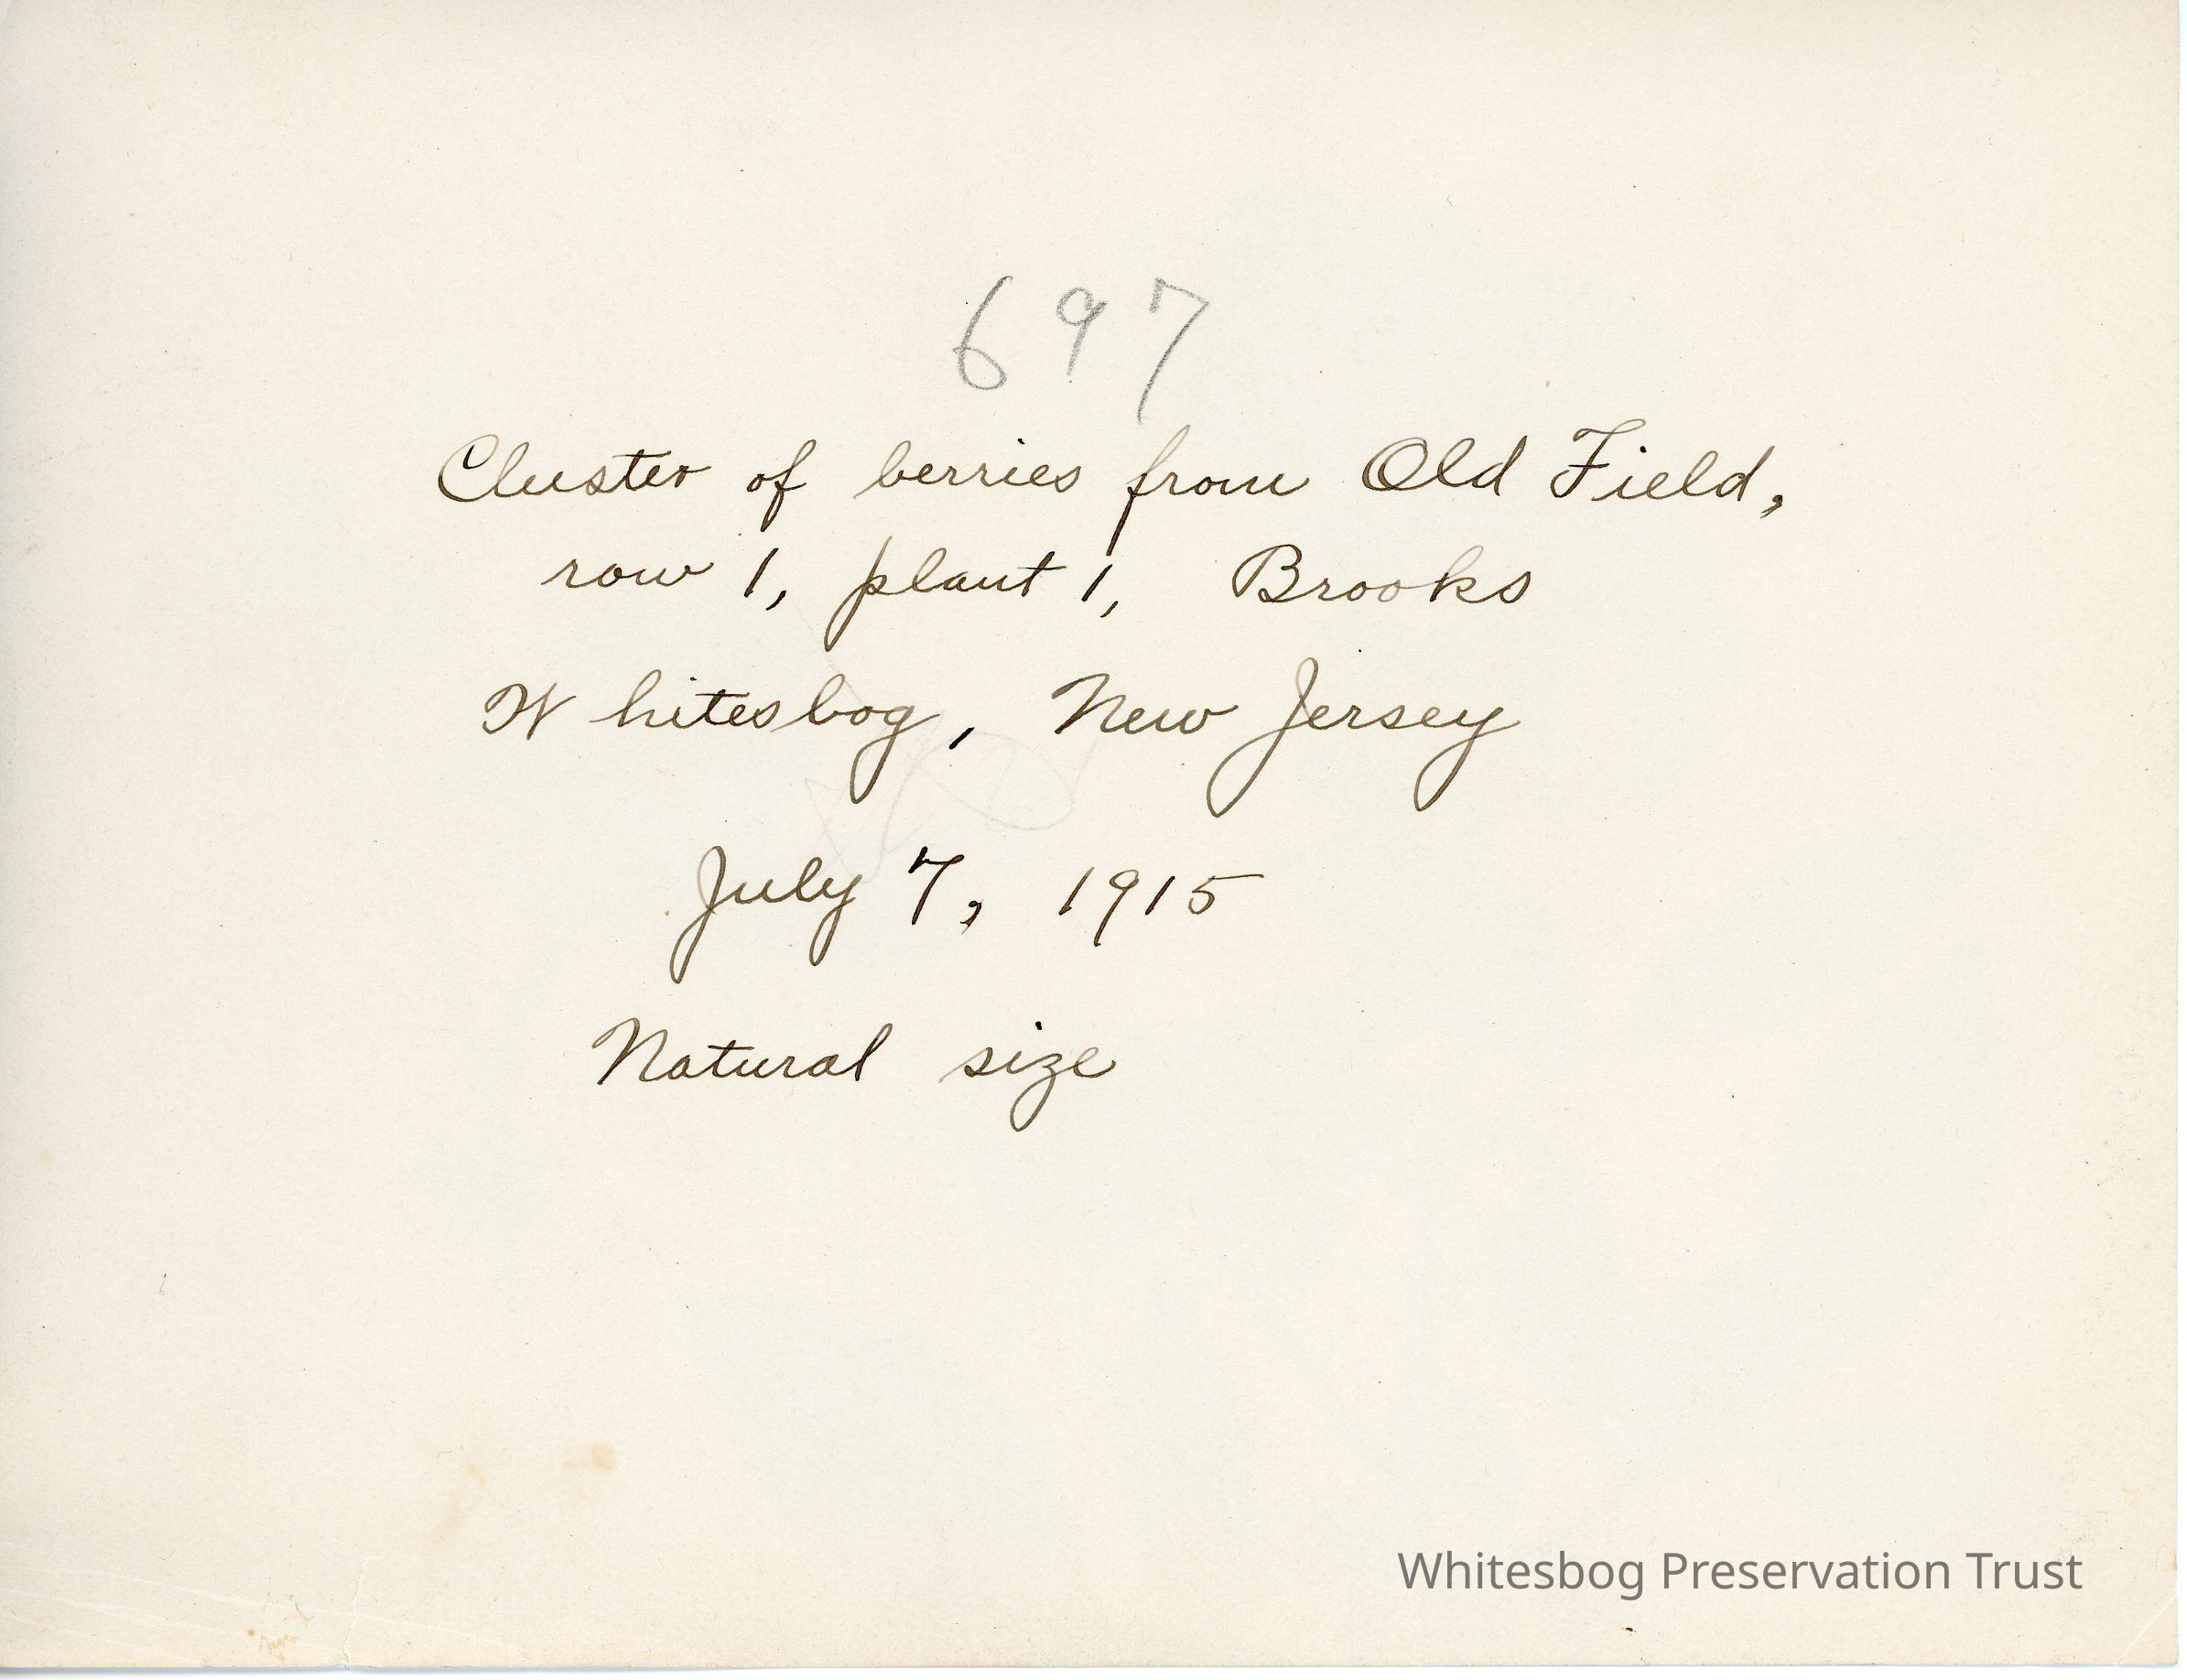 697
Cluster of berries from Old Field,
row 1, plant 1, Brooks
Whitesbog, New Jersey
July 7, 1915
Natural size
Whitesbog Preservation Trust